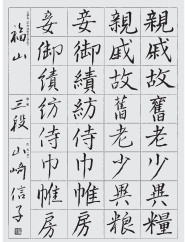 親戚故舊老少異糧
親戚故舊老少異粮
妾御績紡侍巾帷房
妾御績紡侍巾帷房
福山 三段 山崎信子